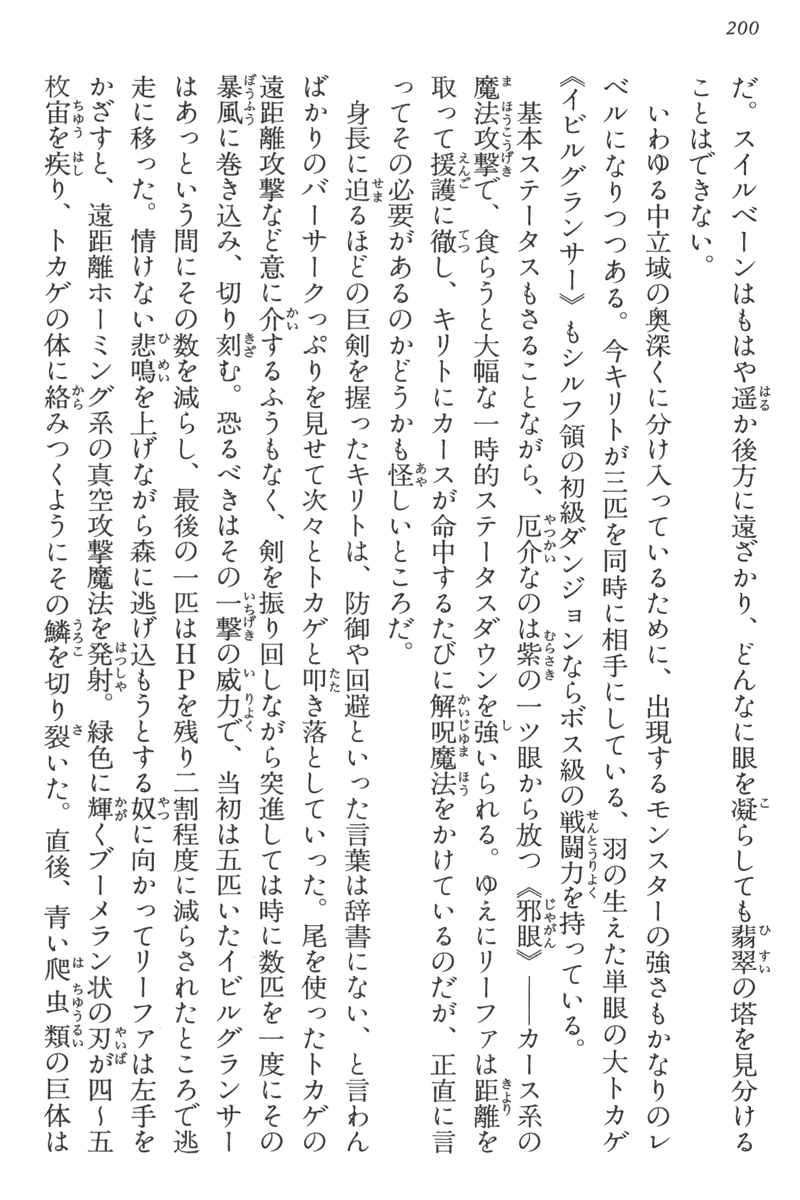 200
だ。スイルベーンはもはや遥か後方に遠ざかり、どんなに眼を凝らしても翡翠の塔を見分ける
ことはできない。
いわゆる中立域の奥深くに分け入っているために、出現するモンスターの強さもかなりのレ
ベルになりつつある。今キリトが三匹を同時に相手にしている、羽の生えた単眼の大トカゲ
《イビルグランサー》もシルフ領の初級ダンジョンならボス級の戦闘力を持っている。
基本ステータスもさることながら、厄介なのは紫の一ツ眼から放つ《邪眼》――カース系の
魔法攻撃で、食らうと大幅な一時的ステータスダウンを強いられる。ゆえにリーファは距離を
取って援護に徹し、キリトにカースが命中するたびに解呪魔法をかけているのだが、正直に言
ってその必要があるのかどうかも怪しいところだ。
身長に迫るほどの巨剣を握ったキリトは、防御や回避といった言葉は辞書にない、と言わん
ばかりのバーサークっぷりを見せて次々とトカゲと叩き落としていった。尾を使ったトカゲの
遠距離攻撃など意に介するふうもなく、剣を振り回しながら突進しては時に数匹を一度にその
暴風に巻き込み、切り刻む。恐るべきはその一撃の威力で、当初は五匹いたイビルグランサー
はあっという間にその数を減らし、最後の一匹はHPを残り二割程度に減らされたところで逃
走に移った。情けない悲鳴を上げながら森に逃げ込もうとする奴に向かってリーファは左手を
かざすと、遠距離ホーミング系の真空攻撃魔法を発射。緑色に輝くブーメラン状の刃が四～五
枚宙を疾り、トカゲの体に絡みつくようにその鱗を切り裂いた。直後、青い爬虫類の巨体は